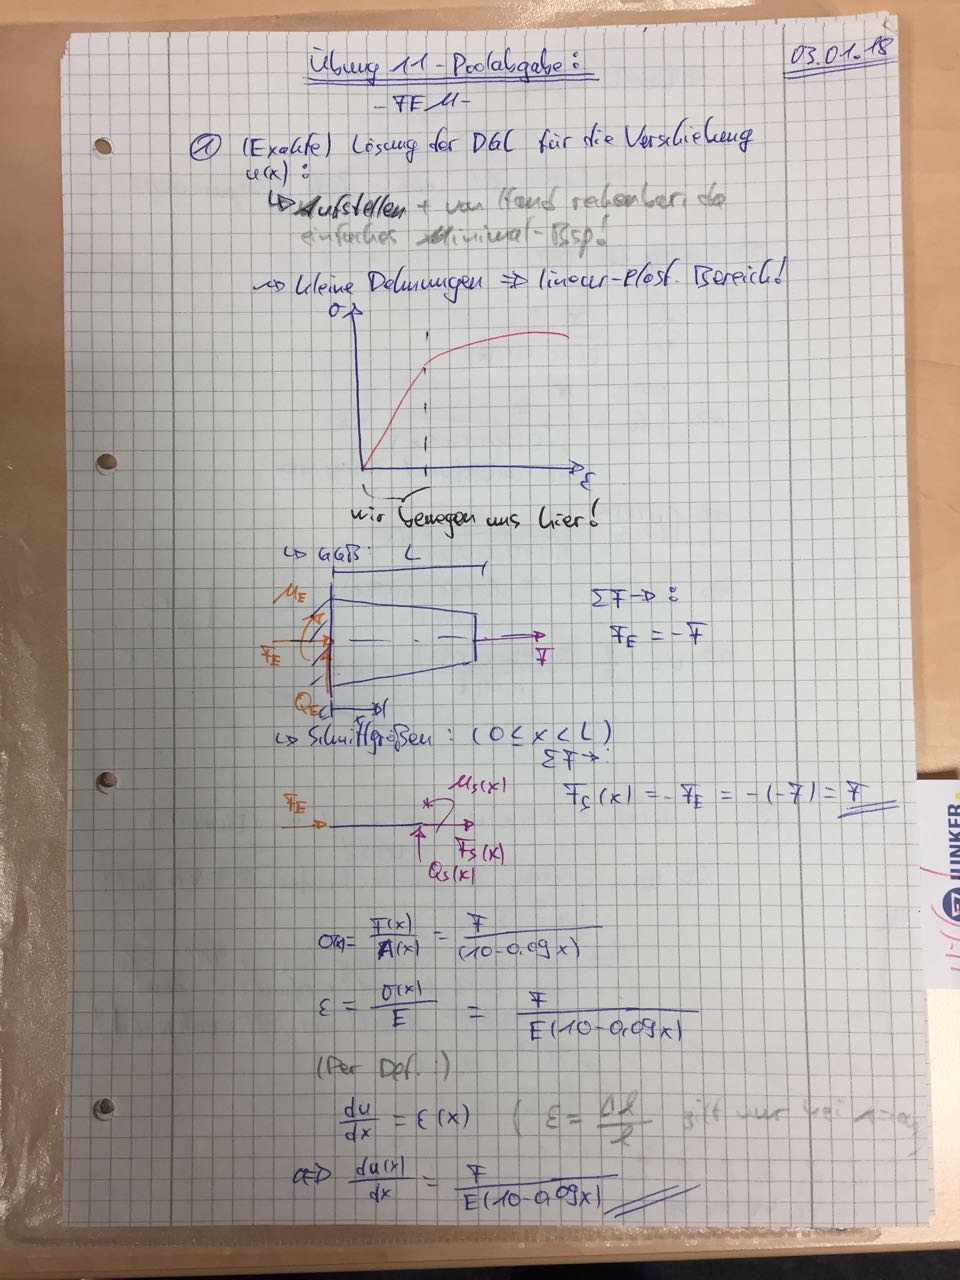 Übung 11 - Poolabgabe:
03.01.18
- FEM -
① (Exakte) Lösung der DGL für die Verschiebung
u(x):
↳ Aufstellen + von Hand rechenbar, da
einfaches Minimal-Bsp!
~> kleine Dehnungen => linear-elast. Bereich!
σ
ε
wir bewegen uns hier!
↳ GGB: L
M_E
ΣF→:
F_E = -F
F_E
F
Q_E
x
↳ Schnittgrößen: (0 ≤ x < L)
ΣF→:
M_S(x)
F_S(x) = -F_E = -(-F) = F
F_E
F_S(x)
Q_S(x)
σ(x) = F(x)/A(x) = F/(10-0,09x)
ε = σ(x)/E = F/E(10-0,09x)
(Per Def.:)
du/dx = ε(x) (ε = Δl/l gilt nur bei
<=> du(x)/dx = F/E(10-0,09x)
JUNKER